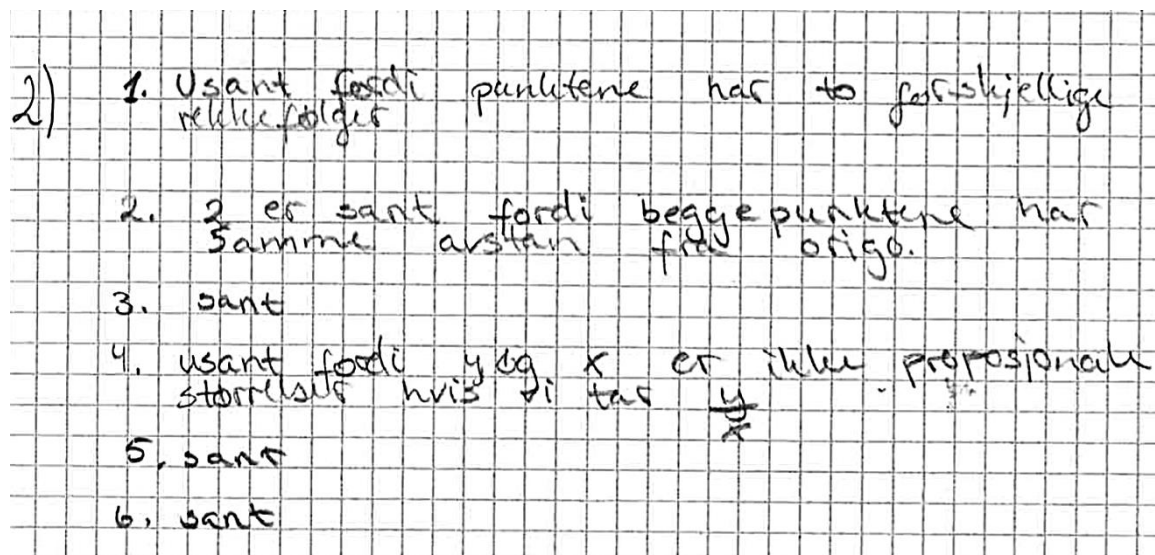 2) 1. Usant fordi punktene har to forskjellige
rekkefølger
2. 2 er sant fordi begge punktene har
samme avstan fra origo.
3. sant
4. usant fordi y og x er ikke proposjonale
størrelser hvis vi tar y/x
5. sant
6. sant